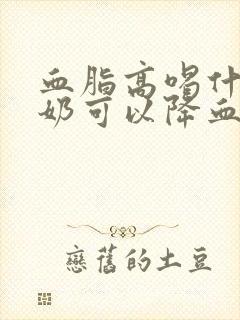 血脂高喝什
奶可以降血
戀舊的土豆